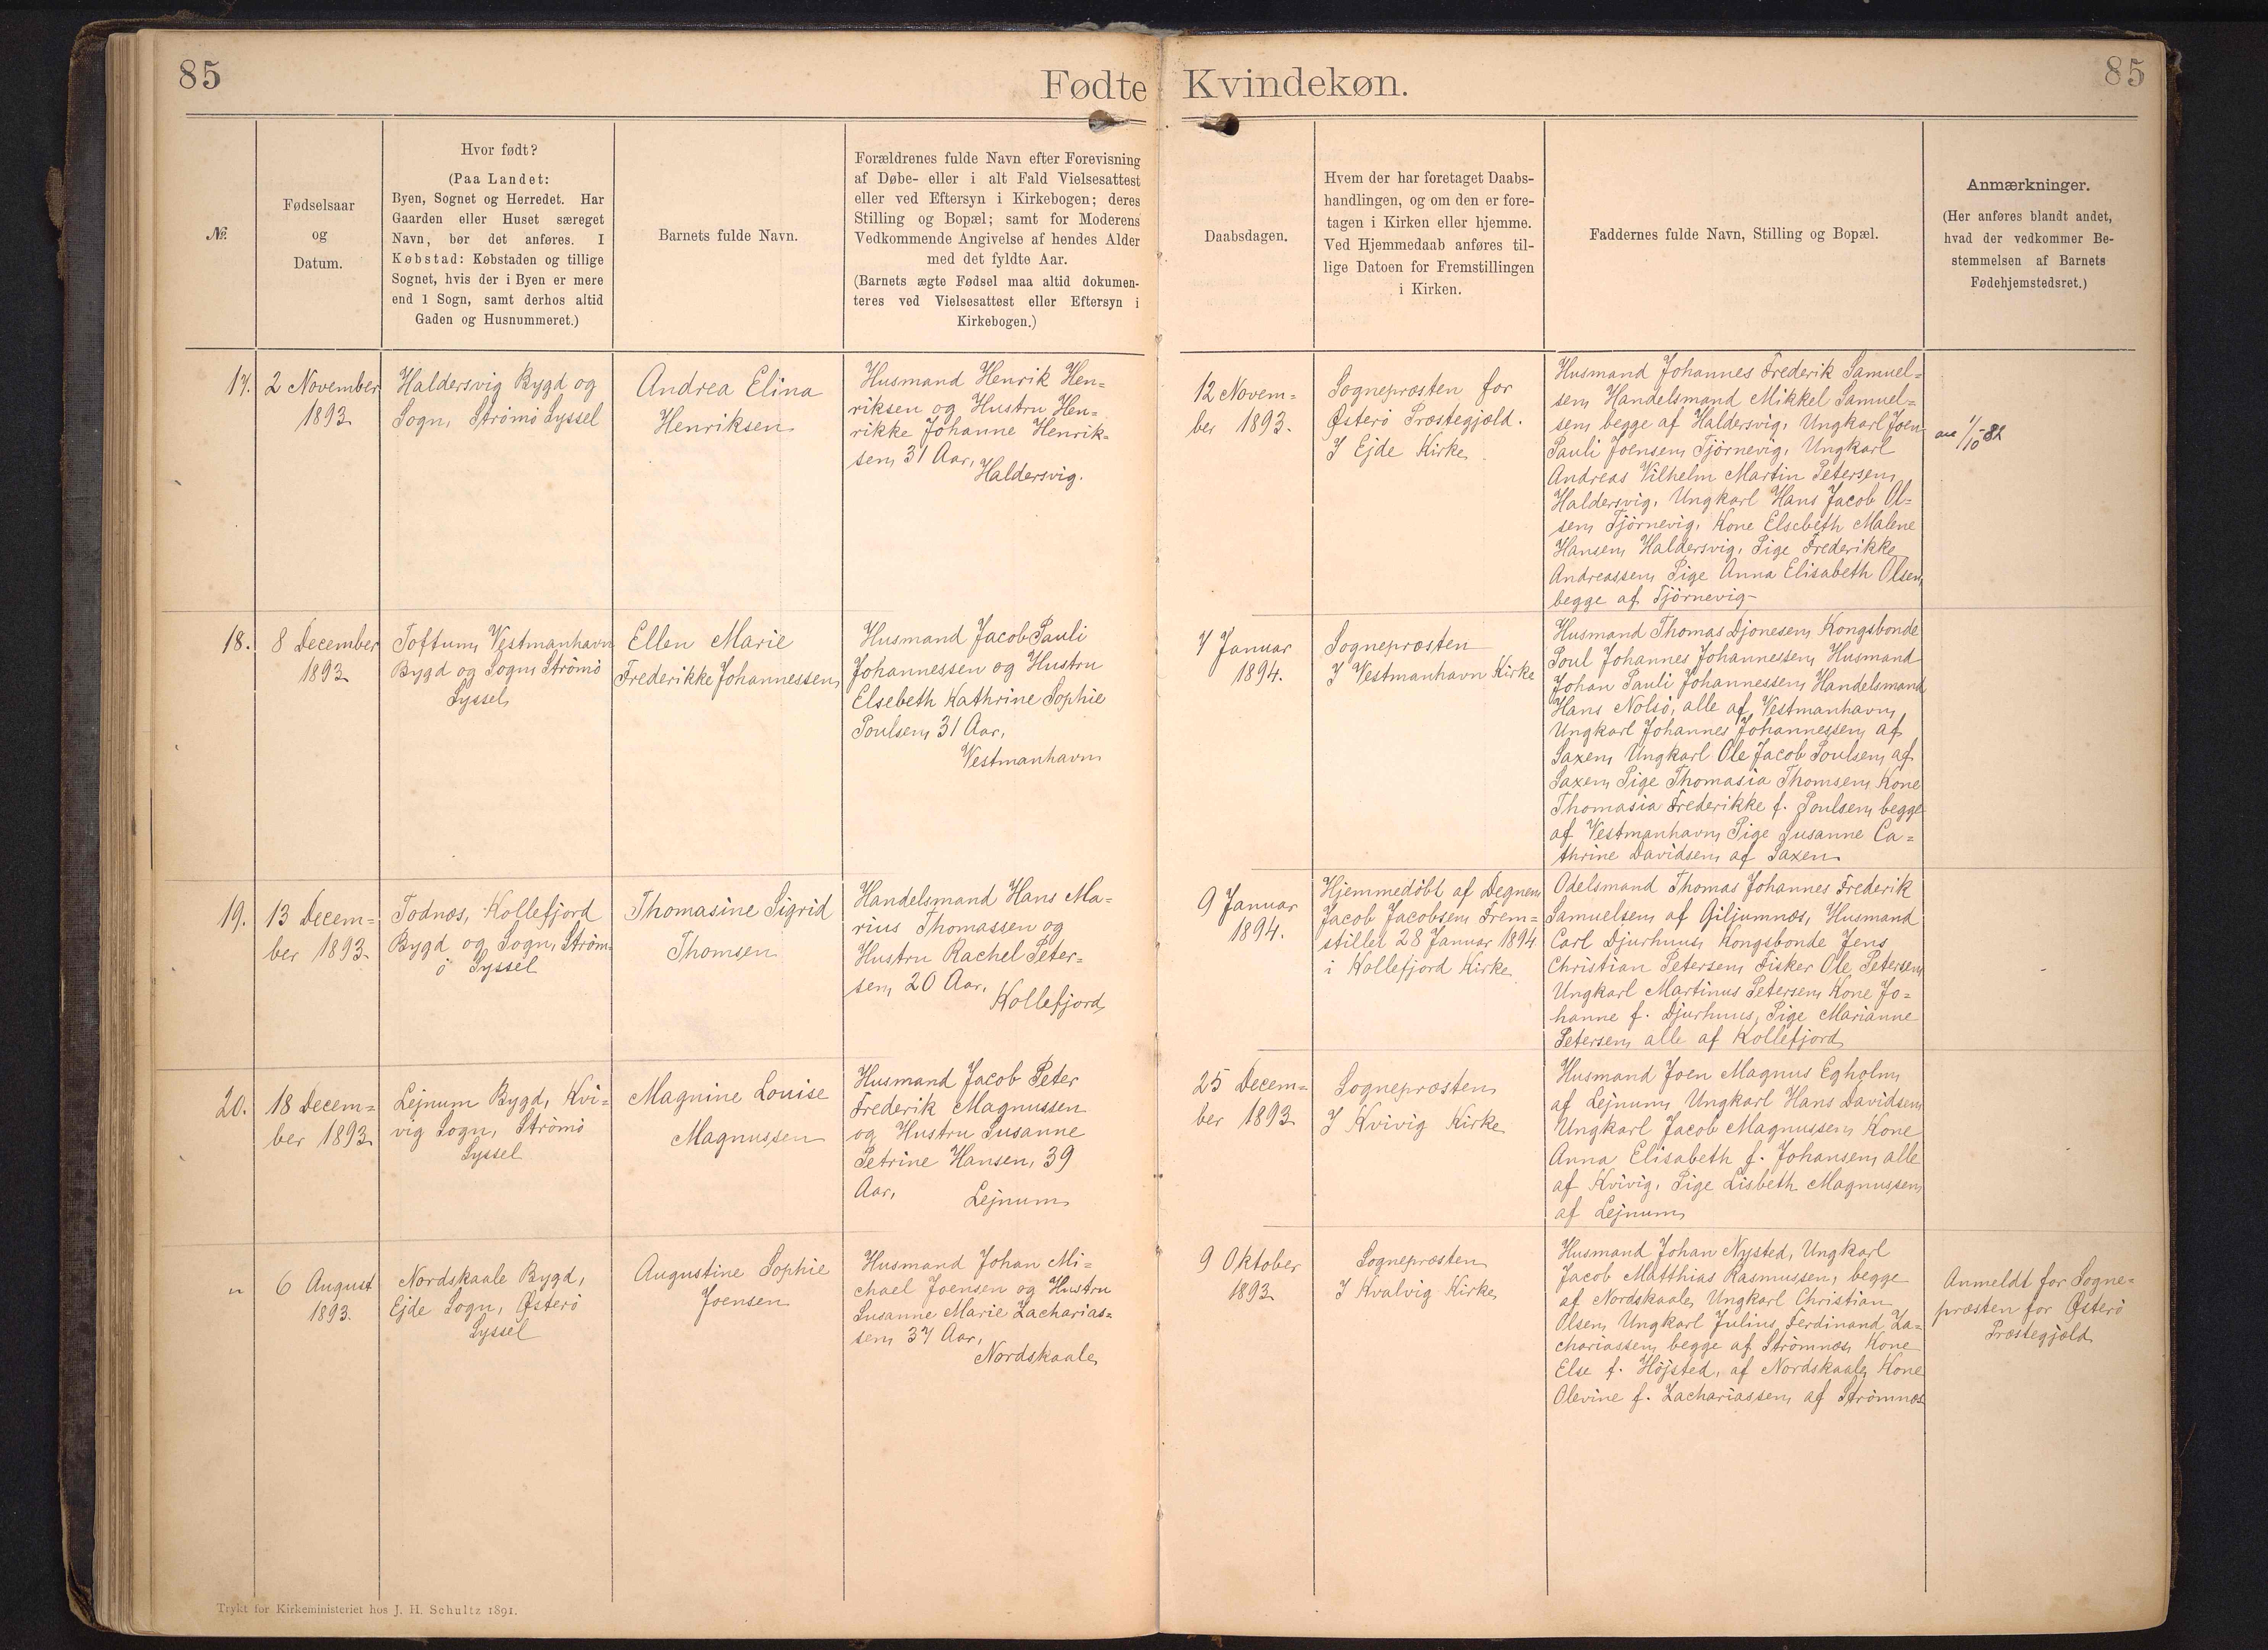 85
Fødte
Kvindekøn.
85
№.
Fødselsaar
og
Datum.
Hvor født?
(Paa Landet:
Byen, Sognet og Herredet. Har
Gaarden eller Huset særeget
Navn, bør det anføres. I
Købstad: Købstaden og tillige
Sognet, hvis der i Byen er mere
end 1 Sogn, samt derhos altid
Gaden og Husnummeret.)
Barnets fulde Navn.
Forældrenes fulde Navn efter Forevisning
af Døbe- eller i alt Fald Vielsesattest
eller ved Eftersyn i Kirkebogen; deres
Stilling og Bopæl; samt for Moderens
Vedkommende Angivelse af hendes Alder
med det fyldte Aar.
(Barnets ægte Fødsel maa altid dokumen-
teres ved Vielsesattest eller Eftersyn i
Kirkebogen.)
Daabsdagen.
Hvem der har foretaget Daabs-
handlingen, og om den er fore-
tagen i Kirken eller hjemme.
Ved Hjemmedaab anføres til-
lige Datoen for Fremstillingen
i Kirken.
Faddernes fulde Navn, Stilling og Bopæl.
Anmærkninger.
(Her anføres blandt andet,
hvad der vedkommer Be-
stemmelsen af Barnets
Fødehjemstedsret.)
17.
2 November
1893
Haldersvig Bygd og
Sogn, Strömö Syssel
Andrea Elina
Henriksen
Husmand Henrik Hen=
riksen og Hustru Hen=
rikke Johanne Henrik=
sen, 31 Aar,
Haldersvig.
12 Novem=
ber 1893.
Sognepræsten for
Østerö Præstegjæld.
I Ejde Kirke
Husmand Johannes Frederik Samuel=
sen, Handelsmand Mikkel Samuel=
sen, begge af Haldersvig, Ungkarl Joen
Pauli Joensen, Tjörnevig, Ungkarl
Andreas Vilhelm Martin Petersen,
Haldersvig, Ungkarl Hans Jacob Ol=
sen, Tjörnevig, Kone Elsebeth Malene
Hansen, Haldersvig, Pige Frederikke
Andreassen, Pige Anna Elisabeth Olsen,
begge af Tjörnevig
1/10-82
18.
8 December
1893
Toftum, Vestmanhavn
Bygd og Sogn, Strömö
Syssel,
Ellen Marie
Frederikke Johannessen,
Husmand Jacob Pauli
Johannessen og Hustru
Elsebeth Kathrine Sophie
Poulsen, 31 Aar,
Vestmanhavn
7 Januar
1894.
Sognepræsten
I Vestmanhavn Kirke
Husmand Thomas Djonesen, Kongsbonde
Poul Johannes Johannessen, Husmand
Johan Pauli Johannessen, Handelsmand
Hans Nolsö, alle af Vestmanhavn,
Ungkarl Johannes Johannessen, af
Saxen, Ungkarl Ole Jacob Poulsen, af
Saxen, Pige Thomasia Thomsen, Kone
Thomasia Frederikke f. Poulsen, begge
af Vestmanhavn, Pige Susanne Ca=
thrine Davidsen, af Saxen
19.
13 Decem=
ber 1893
Todnæs, Kollefjord
Bygd og Sogn, Ström=
ö Syssel
Thomasine Sigrid
Thomsen
Handelsmand Hans Ma=
rius Thomassen og
Hustru Rachel Peter=
sen, 20 Aar,
Kollefjord,
9 Januar
1894.
Hjemmedöbt af Degnen
Jacob Jacobsen, Frem=
stillet 28 Januar 1894
i Kollefjord Kirke
Odelsmand Thomas Johannes Frederik
Samuelsen, af Giljumnæs, Husmand
Carl Djurhuus, Kongsbonde Jens
Christian Petersen, Fisker Ole Petersen,
Ungkarl Martinus Petersen, Kone Jo=
hanne f. Djurhuus, Pige Marianne
Petersen, alle af Kollefjord,
20.
18 Decem=
ber 1893
Lejnum Bygd, Kvi=
vig Sogn, Strömö
Syssel
Magnine Louise
Magnussen
Husmand Jacob Peter
Frederik Magnussen
og Hustru Susanne
Petrine Hansen, 39
Aar,
Lejnum
25 Decem=
ber 1893
Sognepræsten
I Kvivig Kirke
Husmand Joen Magnus Egholm,
af Lejnum, Ungkarl Hans Davidsen,
Ungkarl Jacob Magnussen, Kone
Anna Elisabeth f. Johansen, alle
af Kvivig, Pige Lisbeth Magnussen,
af Lejnum,
"
6 August
1893.
Nordskaale Bygd,
Ejde Sogn, Østerö
Syssel
Augustine Sophie
Joensen
Husmand Johan Mi=
chael Joensen og Hustru
Susanne Marie Zacharias=
sen, 37 Aar,
Nordskaale,
9 Oktober
1893
Sognepræsten
I Kvalvig Kirke,
Husmand Johan Nysted, Ungkarl
Jacob Matthias Rasmussen, begge
af Nordskaale, Ungkarl Christian
Olsen, Ungkarl Julius Ferdinand Za=
chariassen, begge af Strömnæs, Kone
Else f. Höjsted, af Nordskaale, Kone
Olevine f. Zachariassen, af Strömnæs
Anmeldt for Sogne=
præsten for Østerö
Præstegjæld
Trykt for Kirkeministeriet hos J. H. Schultz 1891.